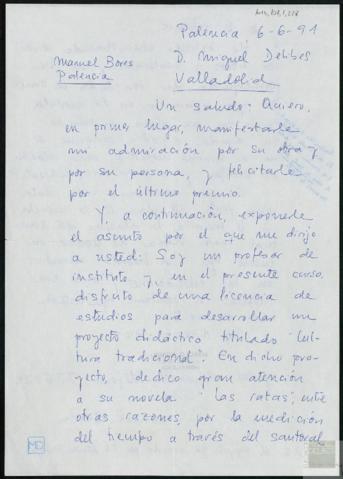 Palencia, 6-6-91
Manuel Bores
Palencia
D. Miguel Delibes
Valladolid
Un saludo. Quiero,
en primer lugar, manifestarle
mi admiración por su obra y
por su persona, y felicitarle
por el último premio.
Y, a continuación, exponerle
el asunto por el que me dirijo
a usted: Soy un profesor de
instituto y en el presente curso
disfruto de una licencia de
estudios para desarrollar un
proyecto didáctico titulado "Cul-
tura tradicional". En dicho pro-
yecto, dedico gran atención
a su novela "las ratas", entre
otras razones, por la medición
del tiempo a través del santoral
MD